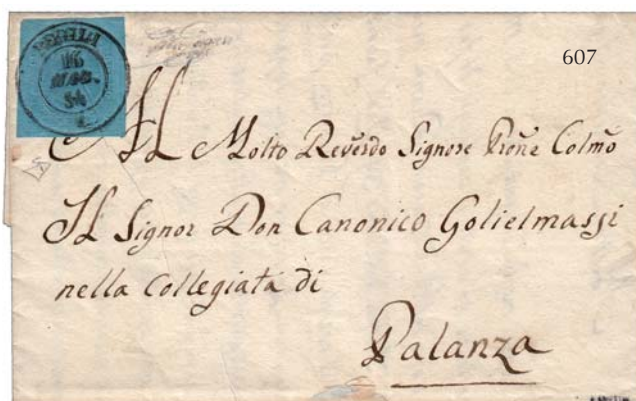 607
16
54
Al Molto Revĕrdo Signore Proñe Colmõ
Il Signor Don Canonico Golielmassi
nella Collegiata di
Palanza